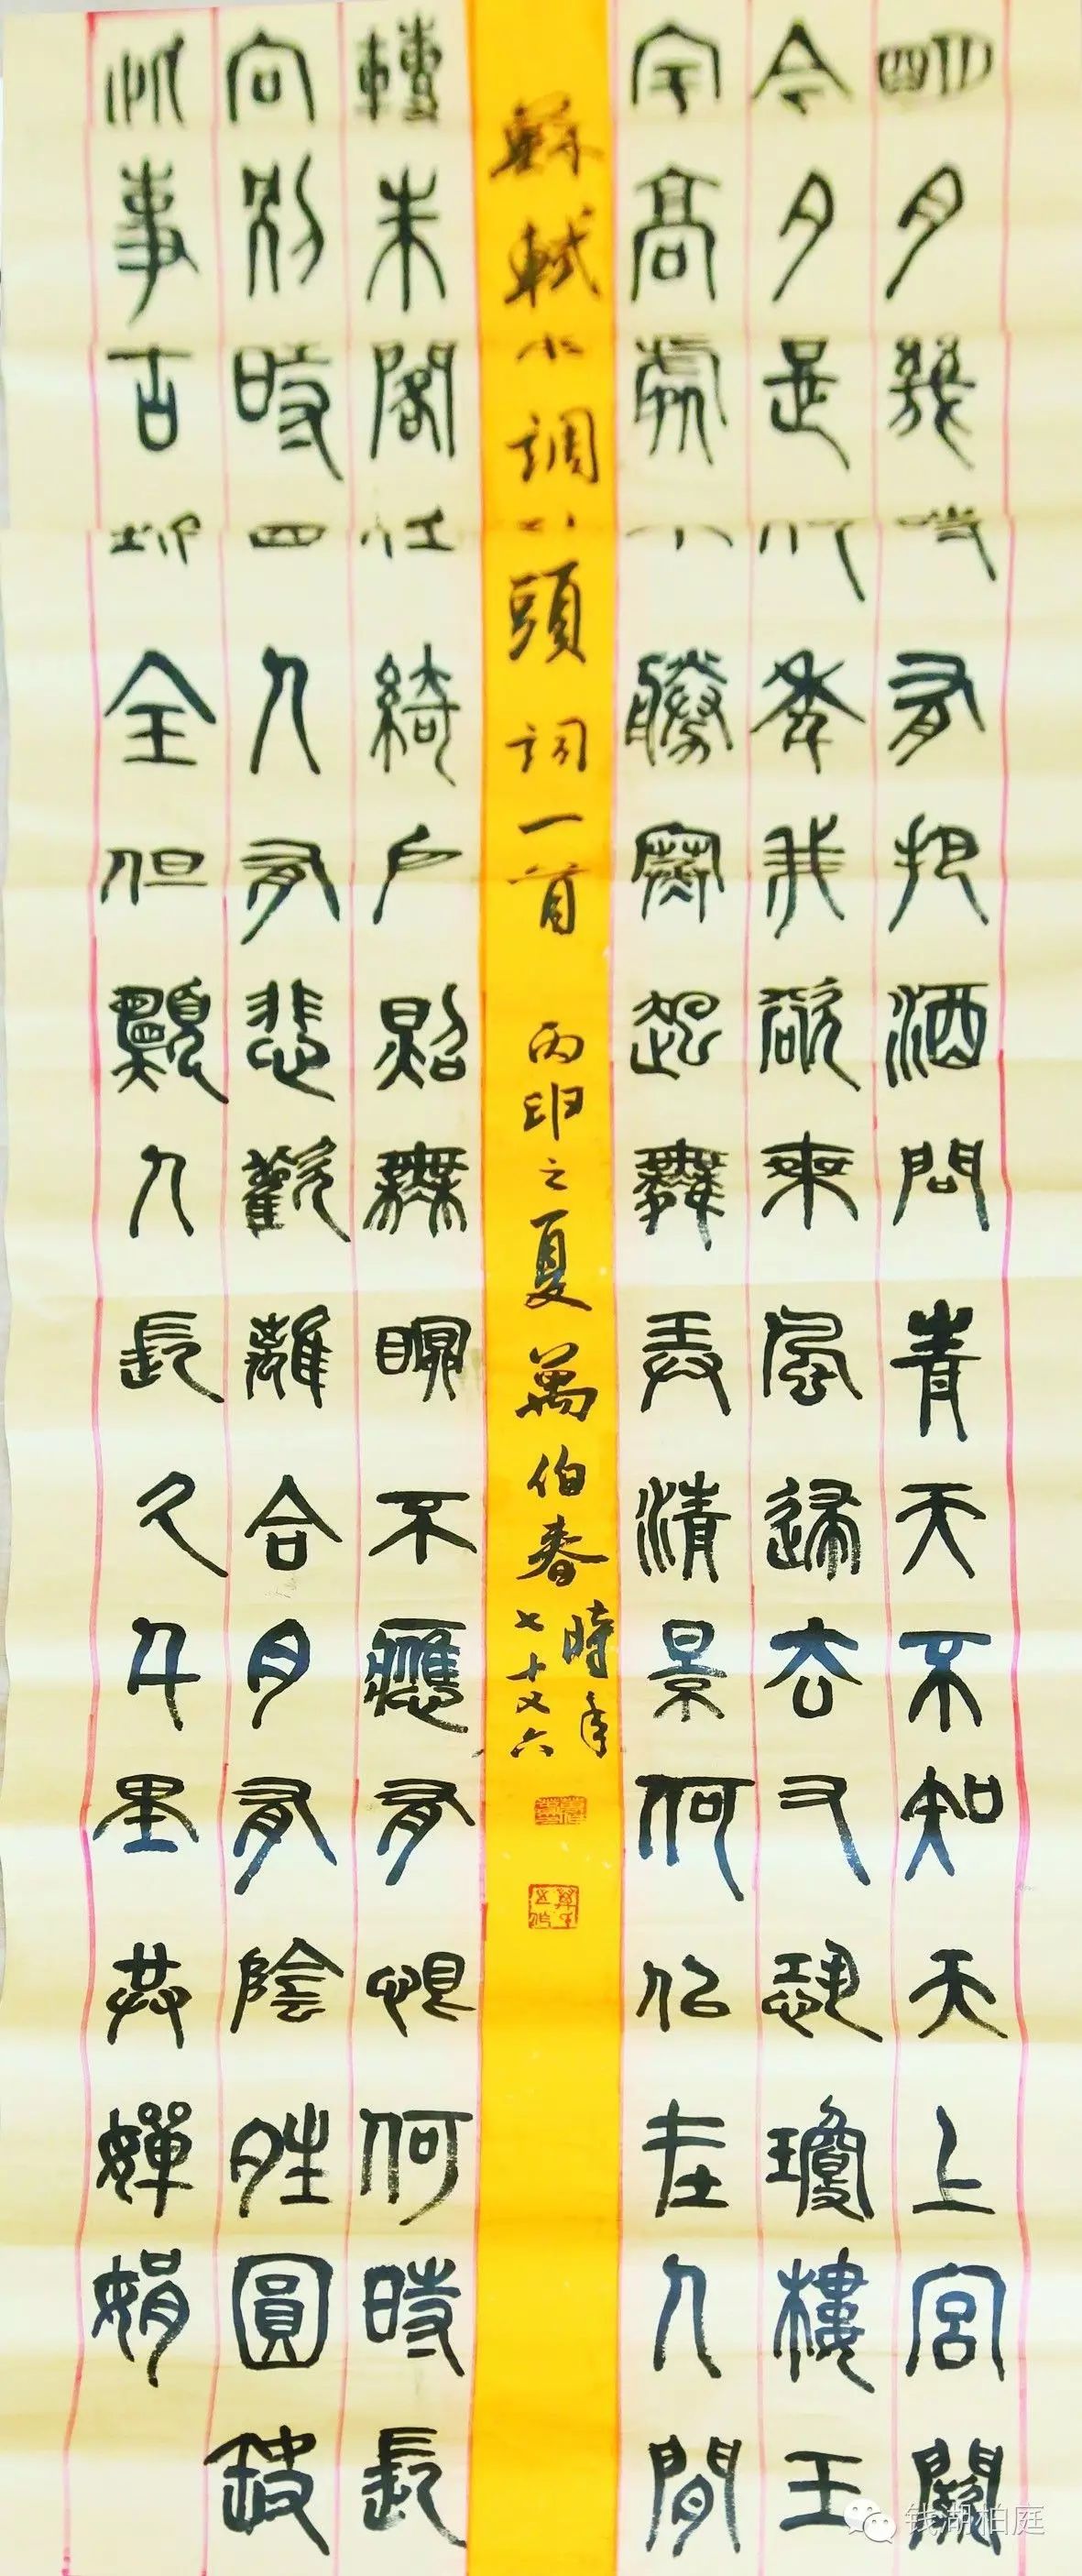 明月幾時有把酒問青天不知天上宮闕
今夕是何年我欲乘風歸去又恐瓊樓玉
宇高處不勝寒起舞弄清景何似在人間
蘇軾水調頭詞一首 丙申之夏萬伯春
時年
七十又六
轉朱閣低綺戶照無眠不應有恨何時長
向別時圓人有悲歡離合月有陰晴圓缺
此事古難全但願人長久千里共嬋娟
钱湖柏庭